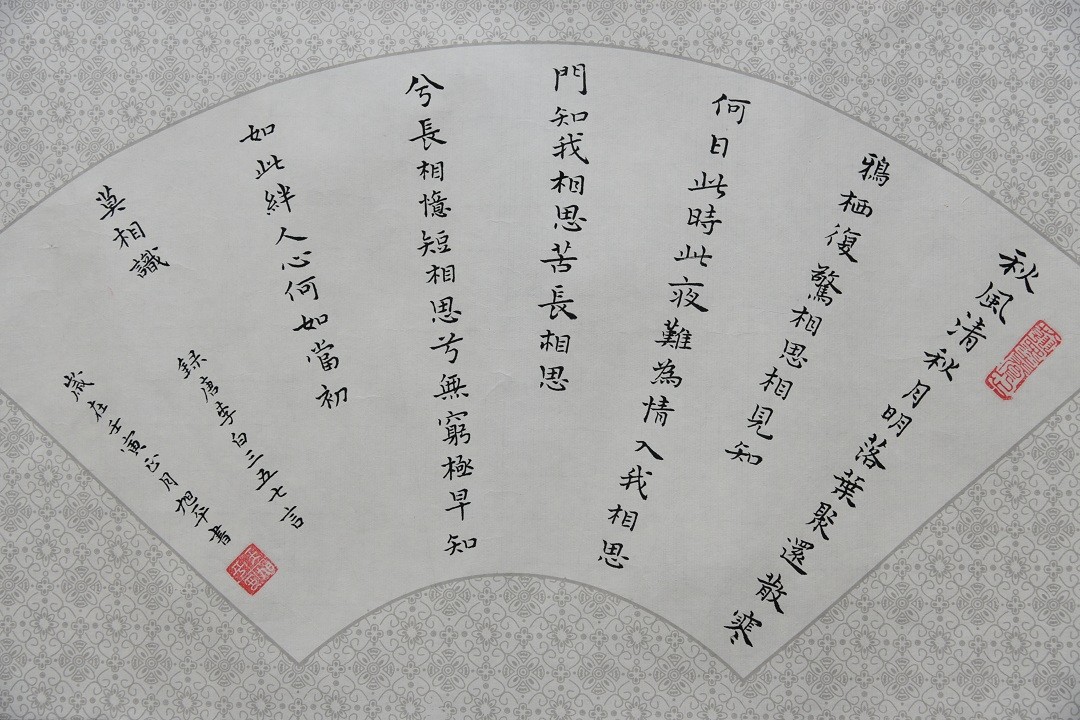 秋風清秋月明落葉聚還散寒
鴉栖復驚相思相見知
何日此時此夜難為情入我相思
門知我相思苦長相思
兮長相憶短相思兮無窮極早知
如此絆人心何如當初
莫相識
録唐李白三五七言
歲在壬寅正月旭平書